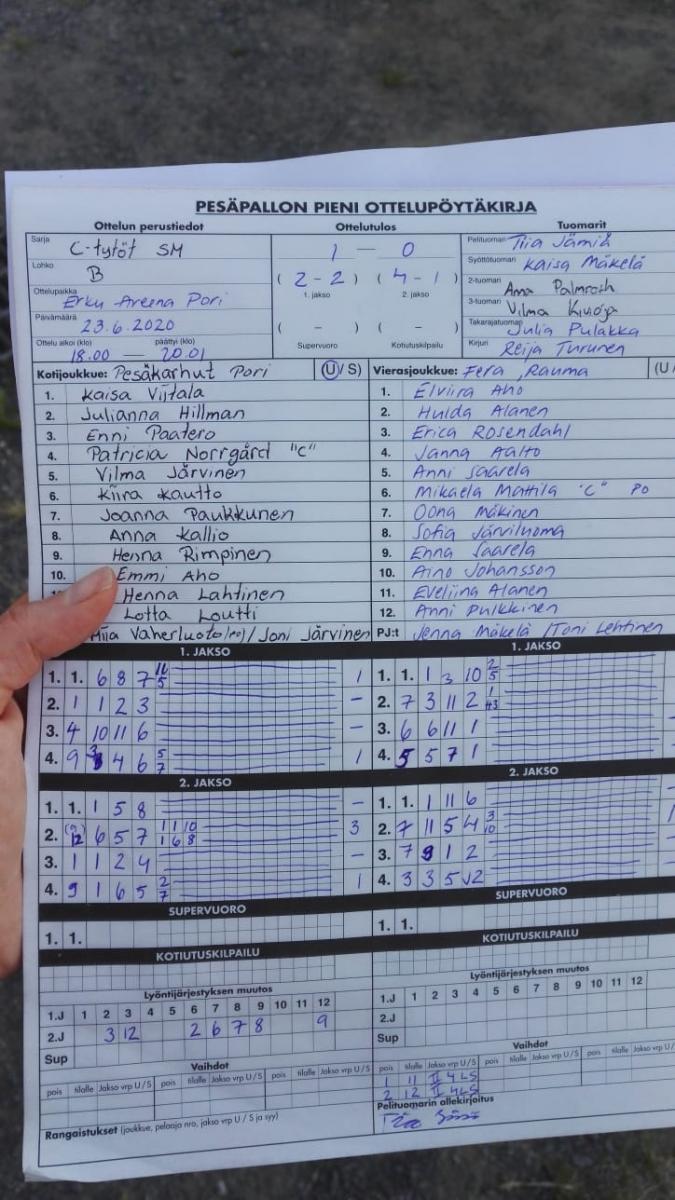 PESÄPALLON PIENI OTTELUPÖYTÄKIRJA
Ottelun perustiedot
Sarja C-tytöt SM
Lohko B
Ottelupaikka Erku Areena Pori
Päivämäärä 23.6.2020
Ottelu alkoi (klo) päättyi (klo)
18.00 — 20.01
Ottelutulos
1 — 0
( 2 - 2 ) ( 4 - 1 )
1. jakso 2. jakso
( - ) ( - )
Supervuoro Kotiutuskilpailu
Tuomarit
Pelituomari Tiia Jämiä
Syöttötuomari Kaisa Mäkelä
2-tuomari Anna Palmroth
3-tuomari Vilma
Takarajatuomari Julia Pulakka
Kirjuri Reija Turunen
Kotijoukkue: Pesäkarhut Pori (U/ S)
1. Kaisa Viitala
2. Julianna Hillman
3. Enni Paatero
4. Patricia Norrgård "C"
5. Vilma Järvinen
6. Kiira Kautto
7. Joanna Paukkunen
8. Anna Kallio
9. Henna Rimpinen
10. Emmi Aho
Henna Lahtinen
Lotta Loutti
Miia Vaherluoto(po)/ Joni Järvinen
Vierasjoukkue: Fera, Rauma (U /
1. Elviira Aho
2. Hulda Alanen
3. Erica Rosendahl
4. Janna Aalto
5. Anni Saarela
6. Mikaela Mattila "C" Po
7. Oona Mäkinen
8. Sofia Järviluoma
9. Enna Saarela
10. Aino Johansson
11. Eveliina Alanen
12. Anni Pulkkinen
PJ:t Jenna Mäkelä / Toni Lehtinen
1. JAKSO
1. 1. 6 8 7 5 1
2. 1 1 2 3 -
3. 4 10 11 6 -
4. 9 3 4 6 5 7 1
2. JAKSO
1. 1. 1 5 8 -
2. (9) 12 6 5 7 1 1 10 1 6 8 3
3. 1 1 2 4 -
4. 9 1 6 5 2 7 1
SUPERVUORO
1. 1.
KOTIUTUSKILPAILU
Lyöntijärjestyksen muutos
1.J 1 2 3 4 5 6 7 8 9 10 11 12
2.J 3 12 2 6 7 8 9
Sup
Vaihdot
pois tilalle Jakso vrp U / S pois tilalle Jakso vrp U / S pois tilalle Jakso vrp U / S
Rangaistukset (joukkue, pelaaja nro, jakso vrp U / S ja syy)
1. JAKSO
1. 1. 1 3 10 2 5
2. 7 3 11 2 1
3. 6 6 11 1
4. 5 5 7 1
2. JAKSO
1. 1. 1 11 6
2. 7 11 5 4 3 10
3. 7 9 1 2
4. 3 3 5 12
SUPERVUORO
1. 1.
KOTIUTUSKILPAILU
Lyöntijärjestyksen muutos
1.J 1 2 3 4 5 6 7 8 9 10 11 12
2.J
Sup
Vaihdot
pois tilalle Jakso vrp U / S pois tilalle Jakso vrp U / S pois tilalle Jakso vrp U / S
1 11 II 4 LS
2 12 II 4 LS
Pelituomarin allekirjoitus